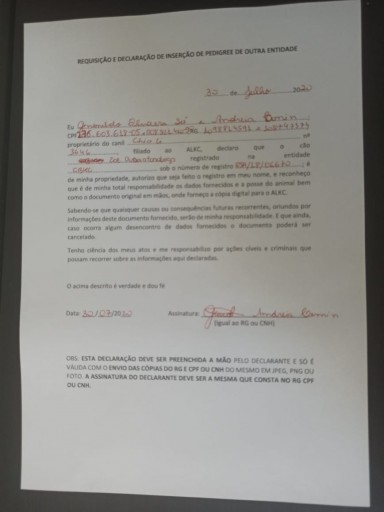 REQUISIÇÃO E DECLARAÇÃO DE INSERÇÃO DE PEDIGREE DE OUTRA ENTIDADE
30 de Julho 2020
Eu e Andreia Bonin
CPF
proprietário do canil nº
3446, filiado ao ALKC, declaro que o cão
registrado na entidade
sob o número de registro, é
da minha propriedade, autorizo que seja feito o registro em meu nome, e reconheço
que é de minha total responsabilidade os dados fornecidos e a posse do animal bem
como o documento original em mãos, onde forneço a cópia digital para o ALKC.
Sabendo-se que quaisquer causas ou consequências futuras recorrentes, oriundos por
informações deste documento fornecido, serão da minha responsabilidade. E que ainda,
caso ocorra algum desencontro de dados fornecidos o documento poderá ser
cancelado.
Tenho ciência dos meus atos e me responsabilizo por ações cíveis e criminais que
possam recorrer sobre as informações aqui declaradas.
O acima descrito é verdade e dou fé
Data: 30/07/2020 Assinatura: Andreia Bonin
(Igual ao RG ou CNH)
OBS: ESTA DECLARAÇÃO DEVE SER PREENCHIDA A MÃO PELO DECLARANTE E SÓ É
VÁLIDA COM O ENVIO DAS CÓPIAS DO RG E CPF OU CNH DO MESMO EM JPEG, PNG OU
FOTO. A ASSINATURA DO DECLARANTE DEVE SER A MESMA QUE CONSTA NO RG CPF
OU CNH.